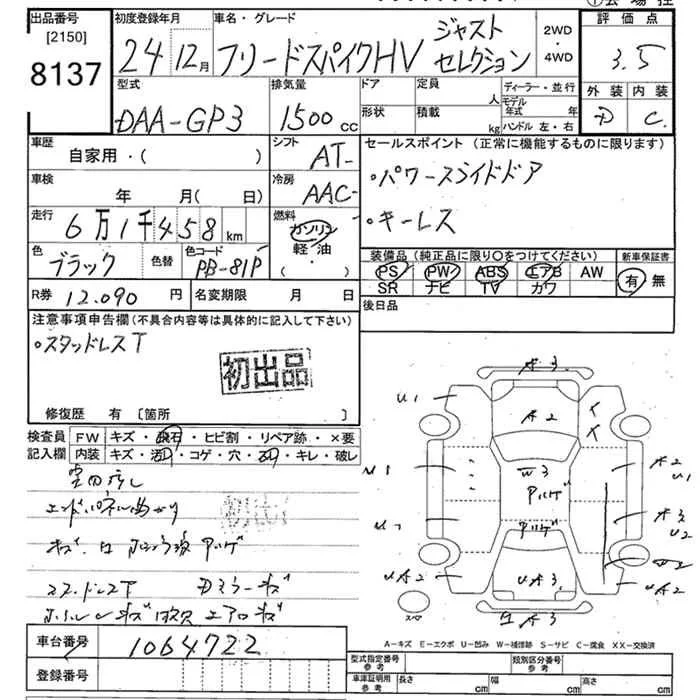 出品番号
[2150]
8137
初度登録年月
24 12月
車名・グレード
フリードスパイクHV ジャスト
セレクション
2WD
・
4WD
評価点
3.5
外装 内装
D C
型式
DAA-GP3
排気量
1500 cc
ドア
形状
定員
人
積載
kg
ディーラー・並行
モデル
年式 年
ハンドル 左・右
車歴
自家用・( )
シフト
AT-
セールスポイント (正常に機能するものに限ります)
・パワースライドドア
・キーレス
車検
年 月( 日)
冷房
AAC-
走行
6万1千458km
燃料
ガソリン
軽・油
( ・ )
色
ブラック
色替
色コード
PB-81P
装備品 (純正品に限り○をつけてください)
PS PW ABS エアB AW
SR ナビ TV カワ
新車保証書
有 無
R券 12.090 円
名変期限 月 日
後日品
注意事項申告欄 (不具合内容等は具体的に記入して下さい)
・スタッドレスT
初出品
修復歴 有 [箇所 ]
検査員
記入欄
FW キズ・飛石・ヒビ割・リペア跡・×要
内装 キズ・汚れ・コゲ・穴・スレ・キレ・破レ
エンドパネル曲がり
スタッドレスT Dミラーキズ
初出品
A3
U1
A2
W3
A2
U1
U1
A3
U2
W2
UA2
UA3
UA2
スペア
A3
A-キズ E-エクボ U-凹み W-補修跡 S-サビ C-腐食 XX-交換済
車台番号
1064722
登録番号
型式指定番号
参考
類別区分番号
参考
車庫証明用
参考
長さ cm
幅 cm
高さ cm